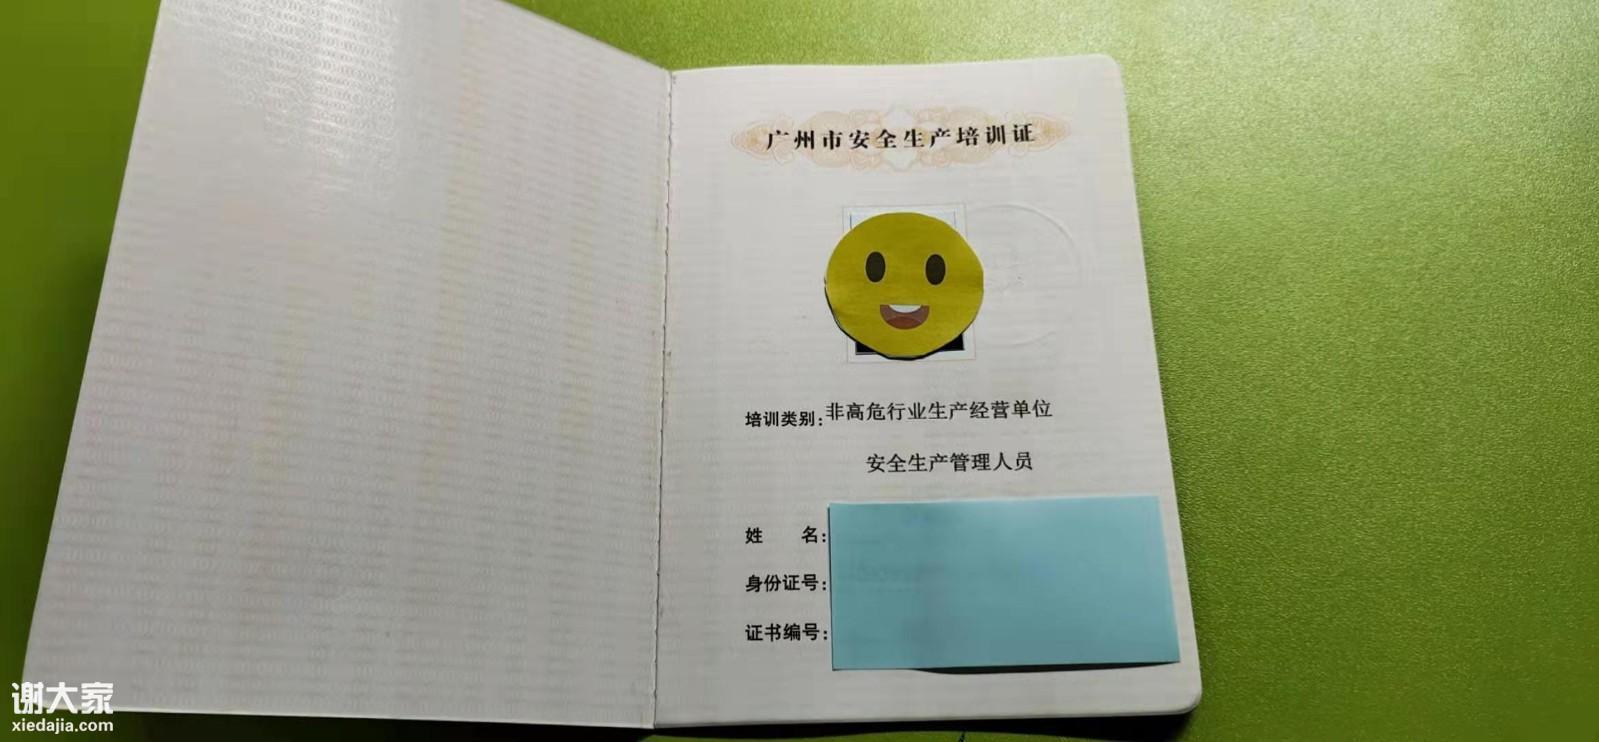 广州市安全生产培训证
培训类别:非高危行业生产经营单位
安全生产管理人员
姓　名:
身份证号:
证书编号:
谢大家
xiedajia.com